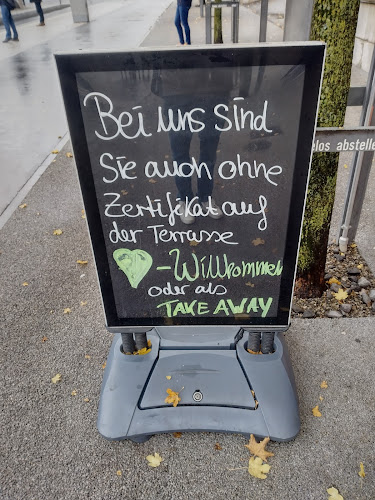 Bei uns sind
Sie auch ohne
Zertifikat auf
der Terrasse
-Willkommen
oder als
TAKE AWAY
elos abstelle